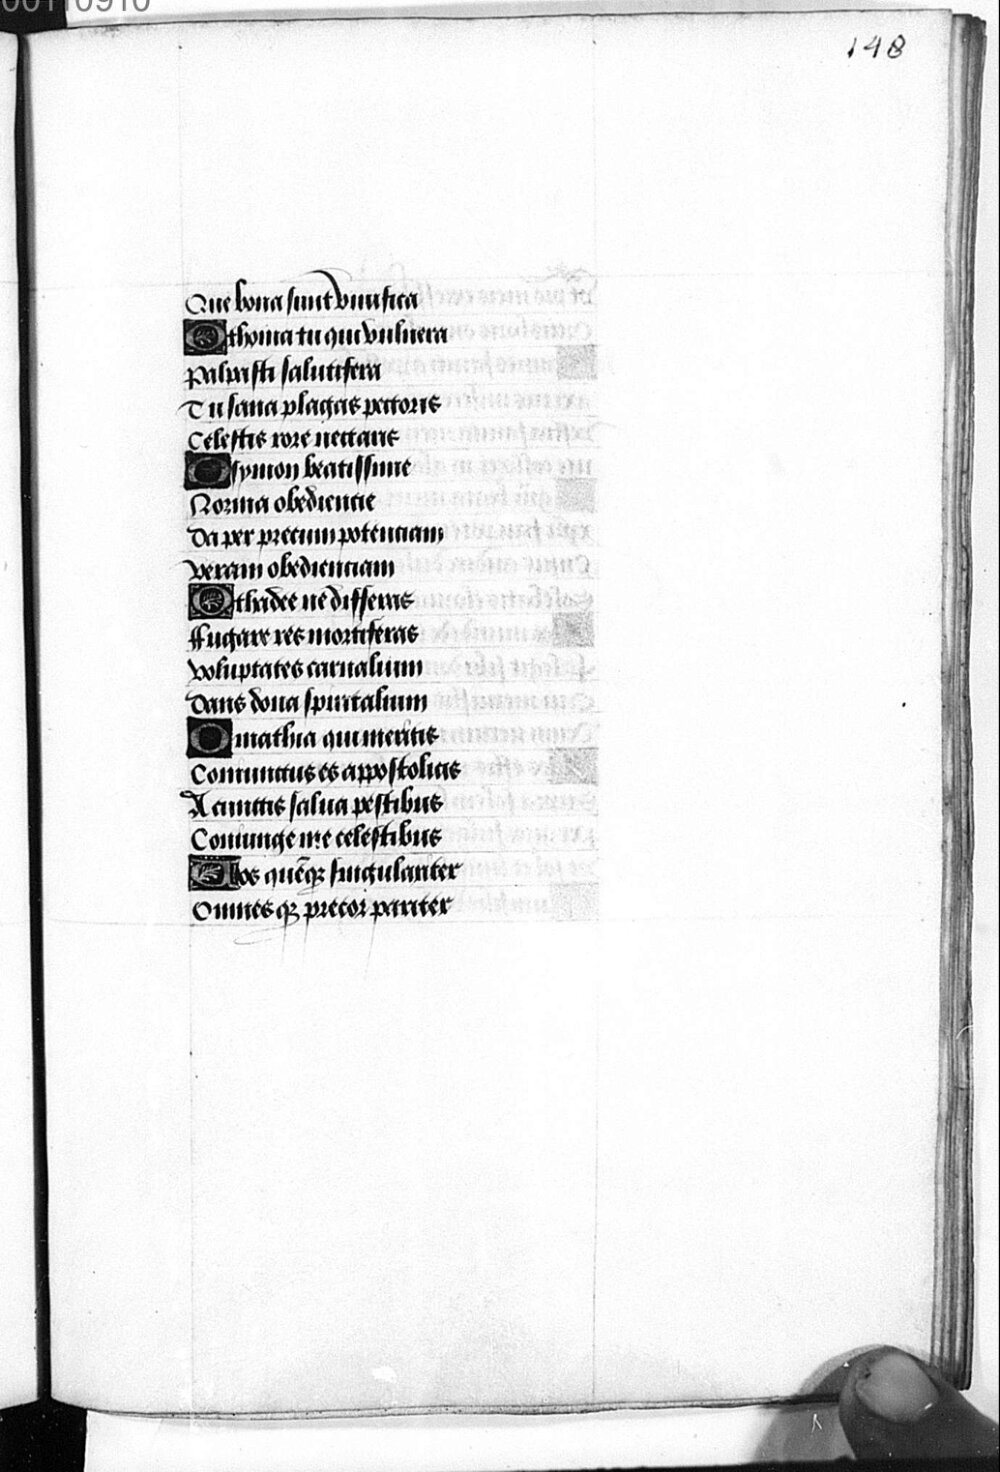 00110910
148
Que bona sunt viuifica
O thoma tu qui vulnera
Palpasti salutifera
Tu sana plagas pectoris
Celestis rore nectaris
O symon beatissime
Norma obediencie
Da per precum potenciam
Veram obedienciam
O thadee ne differas
Ffugare res mortiferas
Voluptates carnalium
Dans dona spiritalium
O mathia qui meritis
Coniunctus es appostolicis
A cunctis salua pestibus
Coniunge me celestibus
Vos quēqꝫ singulariter
Omnes qꝫ precor pariter